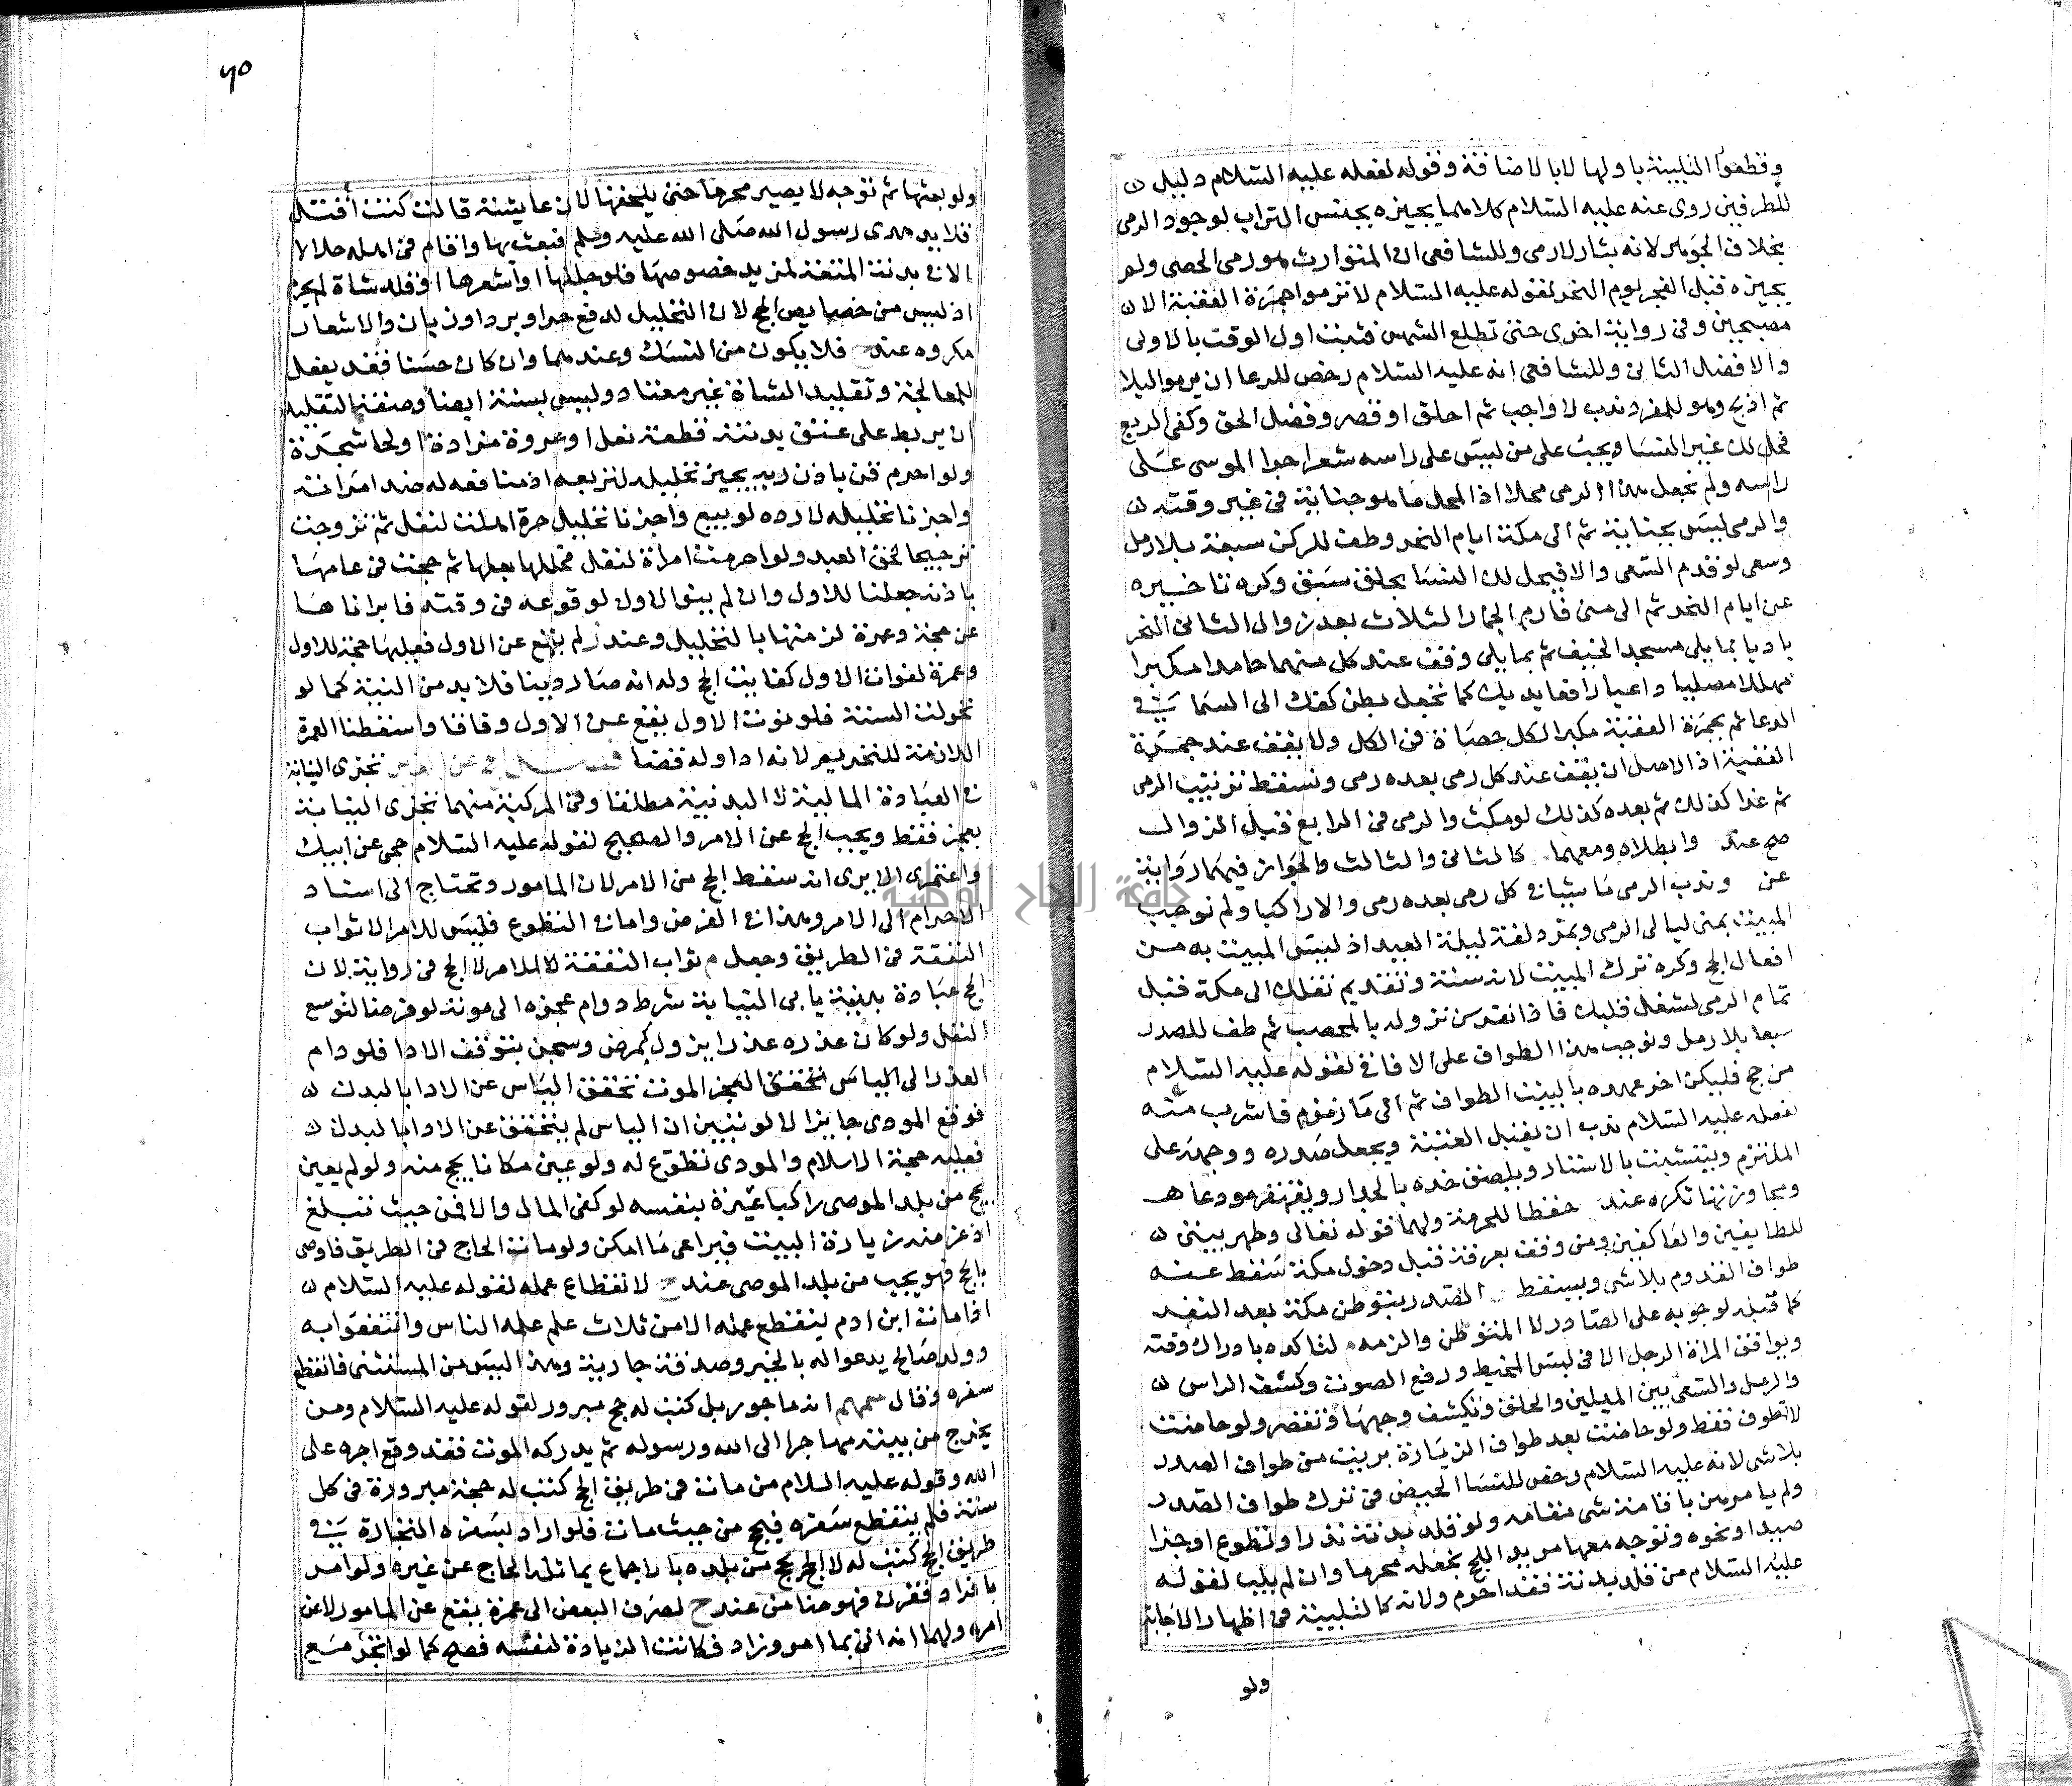 وقطعوا التلبية باولها لا بالاضافة وقوله لفعله عليه السلام دليل ن
للطرفين روى عنه عليه السلام كلاهما يجيزه بجنس التراب لوجود الرمى
بخلاف الجوهر لانه نثار لا رمى وللشافعى ان المتوارث هو رمى الحصى ولم
يجيزه قبل الفجر يوم النحر لقوله عليه السلام لا ترموا جمرة العقبة الا ن
مصبحين وفى رواية اخرى حتى تطلع الشمس فثبت اول الوقت بالاولى
والافضل الثانى وللشافعى انه عليه السلام رخص للرعا ان يرموا ليلا
ثم اذبح وهو للمفرد ندب لا واجب ثم احلق او قصر وفضل الحلق وكفى الربع
فحل لك غير النسا ويجب على من ليس على راسه شعر اجرا الموسى على
راسه ولم نجعل هذا الرمى محلا اذ المحل ما هو جناية فى غير وقته ن
والرمى ليس بجناية ثم ائ مكة ايام النحر وطف للركن سبعة بلا رمل
وسعى لو قدم السعى والا فيحل لك النسا بحلق سبق وكره تاخيره
عن ايام النحر ثم الى منى فارم الجمار الثلاث بعد زوال الثانى النحر
باديا بما يلى مسجد الخيف ثم بما يلى وقف عند كل منهما حامدا مكبرا
مهللا مصليا داعيا رافعا يديك كما نجعل بطن كفك الى السما فى
الدعا ثم بجمرة العقبة مكبرا لكل حصاة فى الكل ولا يقف عند جمرة
العقبة اذ الاصل ان يقف عند كل رمى بعده رمى ونسقط ترتيب الرمى
ثم غدا كذلك ثم بعده كذلك لو مكث والرمى فى الرابع قبل الزوال
صح عند وابطلاه ومعهما كالثانى والثالث والجواز فيهما رواية
عن وندب الرمى ماشيا فى كل رمى بعده رمى والا راكبا ولم نوجب
المبيت بمنى ليالى الرمى وبمزدلفة ليلة العيد اذ ليس المبيت به من
افعال الحج وكره ترك المبيت لانه سنة وتقديم ثقلك الى مكة قبل
تمام الرمى لشغل قلبك فاذا نفرت نزوله بالمحصب ثم طف للصدر
سبعا بلا رمل ونوجب هذا الطواف على الافاقى لقوله عليه السلام
من حج فليكن اخر عهده بالبيت الطواف ثم ائ ما زمزم فاشرب منه
لفعله عليه السلام ندب ان يقبل العتبة ويجعل صدره ووجهه على
الملتزم ويتشبث بالاستار ويلصق خده بالجدار
ومجاورتها تكره عند حفظا للحرمة ولهما قوله تعالى وطهر بيتى ن
للطايفين والعاكفين ومن وقف بعرفة قبل دخول مكة سقط عنه
طواف القدوم بلا شى ويسقط الصدر بتوطن مكة بعد النفر
كما قبله لوجوبه على الصادر لا المتوطن والزمه لتاكده بادراك وقته
ويوافق المراة الرجل الا فى لبس المخيط ورفع الصوت وكشف الراس ن
والرمل والسعى بين الميلين والحلق وتكشف وجهها وتقصر ولو حاضت
لا تطوف فقط ولو حاضت بعد طواف الزيارة بريت من طواف الصدر
بلا شى لانه عليه السلام رخص للنسا الحيض فى ترك طواف الصدر
ولم يامرهن باقامة شى مقامه ولو قلد بدنة نذر او تطوع او جزا
صيد او نحوه وتوجه معها مريد اللحج نجعله محرما وان لم يلب لقوله
عليه السلام من قلد بدنة فقد احرم ولانه كالتلبية فى اظهار الاجابة
ولو
٦٥
ولو بعثها ثم توجه لا يصير محرما حتى يلحقها لان عايشة قالت كنت افتل
قلايد هدى رسول الله صلى الله عليه وسلم فبعث بها واقام فى اهله حلالا
الا فى بدنة المتعة لمزيد خصوصها فلو جللها او اشعرها او قلد شاة لم يحرم
اذ ليس من خصايص الحج لان التجليل لدفع حر او برد او زيان والاشعار
مكروه عند ح فلا يكون من النسك وعندهما وان كان حسنا فقد يفعل
للمعالجة وتقليد الشاة غير معتاد وليس بسنة ايضا وصفة التقليد
ان يربط على عنق بدنته قطعة نعل او عروة مزادة او لحا شجرة
ولو احرم قن باذن ربه يجيز تحليله لنريعه اذ منافعه له ضد امراته
واجزنا تحليله لا رده لو بيع واجزنا تحليل حرة اهلت لنفل ثم تزوجت
ترجيحا لحق العبد ولو احرمت امراة لنفل فحللها بعلها ثم حجت فى عامها
باذنه جعلنا للاول وان لم ينو الاول لوقوعه فى وقته فابراناها
عن حجة وعمرة لزمتها بالتحليل وعند ز لم يقع عن الاول فعليها حجة للاول
وعمرة لفوات الاول كفايت الحج وله انه صار دينا فلا بد من النية كما لو
تحولت السنة فلو نوت الاول يقع عن الاول وفاقا واسقطنا العمرة
اللازمة للتحريم لانه ادا وله قضا فصل فى الحج عن الغير تجزى النيابة
فى العبادة المالية لا البدنية مطلقا وفى المركبة منهما تجزى النيابة
بعجز فقط ويجب الحج عن الامر والصحيح لقوله عليه السلام حجى عن ابيك
واعتمرى الا يرى انه سقط الحج من الامر لان المامور وتحتاج الى اسناد
الاحرام الى الامر وهذا فى الفرض واما فى التطوع فليس للامر الا ثواب
النفقة فى الطريق وجعل م ثواب النفقة للامر لا الحج فى رواية لان
الحج عبادة بدنية يابى النيابة شرط دوام عجزه الى موته لو فرضا لتوسع
النفل ولو كان عذره عذرا يزول كمرض وسجن يتوقف الادا فلو دام
العذر الى الياس تحقق العجز الموت تحقق الياس عن الادا بالبدن ن
فوقع المودى جايزا لا لو تبين ان الياس لم يتحقق عن الادا بالبدن ن
فعليه حجة الاسلام والمودى تطوع له ولو عين مكانا يحج منه ولو لم يعين
يحج من بلد الموصى راكبا غيره بنفسه لو كفى المال والا فمن حيث تبلغ
اذ غرضه زيارة البيت فيراعى ما امكن ولو مات الحاج فى الطريق فاوصى
بالحج فهو يجب من بلد الموصى عند ح لانقطاع عمله لقوله عليه السلام ن
اذا مات ابن ادم ينقطع عمله الا من ثلاث علم علمه الناس وانتفعوا به
وولد صالح يدعوا له بالخير وصدقة جارية وهذا ليس من المستثنى فانقطع
سفره وقال انه ماجور بل كتب له حج مبرور لقوله عليه السلام ومن
يخرج من بيته مهاجرا الى الله ورسوله ثم يدركه الموت فقد وقع اجره على
الله وقوله عليه السلام من مات فى طريق الحج كتب له حجة مبرورة فى كل
سنة فلم ينقطع سفره فيحج من حيث مات فلو اراد بسفره التجارة فى
طريق الحج كتب له لا الحج يحج من بلده بالاجماع يماثله الحاج عن غيره ولو امر
بافراد فقرن فهو ضامن عند ح لصرف البعض الى عمرة يقع عن المامور لا عن
امره ولهما انه اتى بما امر وزاد فكانت الزيادة لنفسه فصح كما لو اتجر مع